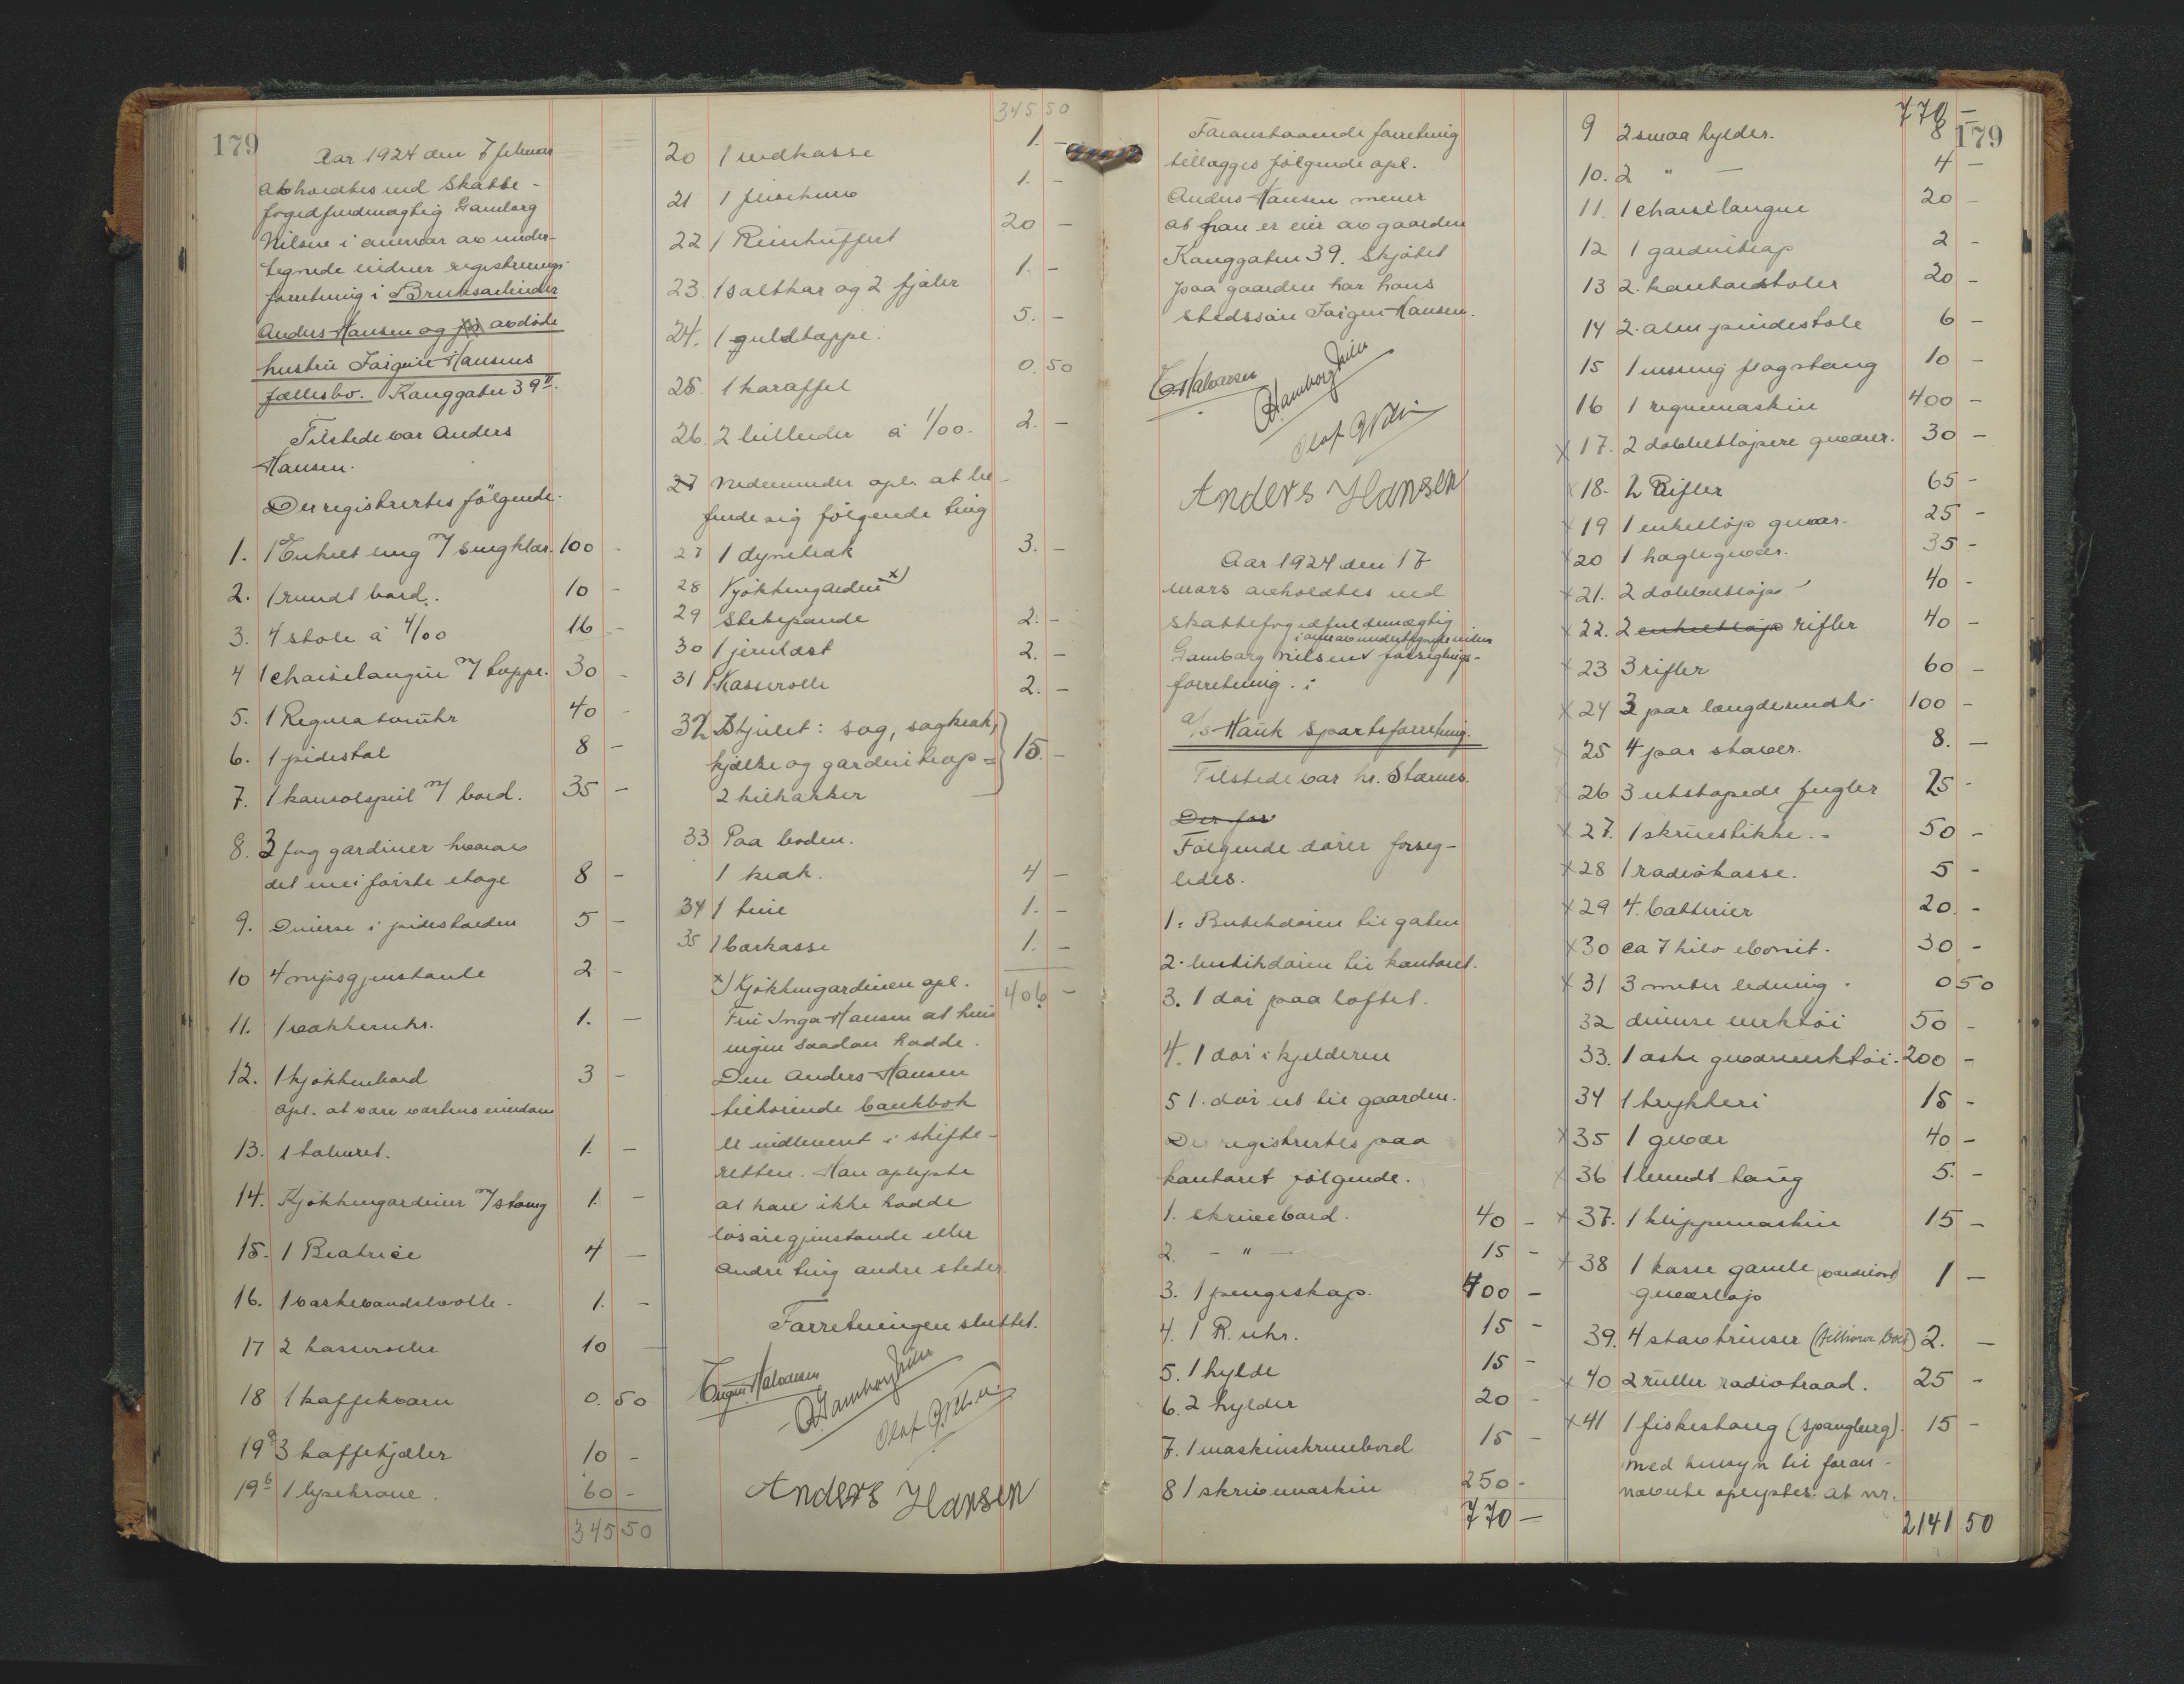 179
Aar 1924 den 7 februar
avholdtes ved Skatte-
fogedfuldmægtig Hamborg
Nilsen i nærvær av under-
tegnede vidner registrerings-
forretning i Bruksarbeider
Anders Hansen og avdöde
hustru Jørgine Hansens
fællesbo. Kanggaten 39 II.
Tilstede var Anders
Hansen.
Der registrertes følgende.
1. 1 Enkelt seng m/ sengklær. 100 -
2. 1 rundt bord. 10 -
3. 4 stole á 4/00 16 -
4 1 chaiselangue m/ teppe. 30 -
5. 1 Regulatoruhr 40 -
6. 1 pidestal 8 -
7. 1 konsolspeil m/ bord. 35 -
8. 3 fag gardiner hvorav
det ene i første etage 8 -
9. Diverse i pidestalen 5 -
10 4 nipsgjenstande 2 -
11. 1 vækkeruhr. 1. -
12. 1 kjøkkenbord 3 -
opl. at være værtens eiendom
13. 1 taburet. 1. -
14. Kjøkkengardiner m/ stang 1. -
15. 1 Beatrice 4 -
16. 1 vaskevandsbolle. 1. -
17 2 kasseroller 10
18 1 kaffekvern 0.50
19a 3 kaffekjeler 10 -
19b 1 lysekrone. 60 -
345 50
345 50
20 1 vedkasse 1. -
21 1 1. -
22 1 20 -
23. 1 saltkar og 2 fjæler 1. -
24. 1 gulvteppe. 5. -
25. 1 karaffel 0.50
26. 2 billeder á 1/00. 2. -
27 Nedenunder opl. at be-
finde sig følgende ting
27 1 dynetræk 3. -
28 Kjøkkengardin x)
29 Stekepande 2. -
30 1 2. -
31 1 Kasserolle 2. -
32 I skjulet: sag, sagkrak,
kjælke og gardintrap = 15. -
2 hilhakker
33 Paa boden.
1 krak. 4 -
34 1 tine 1. -
35 1 bærkasse 1. -
x) Kjøkkengardinen opl. 406 -
Fru Inga Hansen at hun
ingen saadan hadde.
Den Anders Hansen
tilhørende bankbok
er indleveret i skifte-
retten. Han oplyste
at han ikke hadde
løsøregjenstande eller
andre ting andre steder.
Forretningen sluttet.
Halvorsen
Hamborg Nilsen
Olaf
Anders Hansen
Foranstaaende forretning
tillægges følgende opl.
Anders Hansen mener
at han er eier av gaarden
Kanggaten 39. Skjøtet
paa gaarden har hans
stedssøn Jørgen Hansen.
Halvorsen
Hamborg Nilsen
Olaf
Anders Hansen
Aar 1924 den 17
mars avholdtes ved
skattefogedfuldmægtig
i nærvær av undertegnede vidner
Hamborg Nilsen forseglings-
forretning. i
a/s Hauk Sportsforretning.
Tilstede var hr. Størmer.
Der for
Følgende dører forseg-
ledes.
1. Butikdøren til gaten
2. butikdøren til kontoret.
3. 1 dør paa loftet.
4. 1 dør i kjelderen
5 1. dør ut til gaarden.
Der registrertes paa
kontoret følgende.
1. skrivebord. 40 -
2. - " - 15 -
3. 1 pengeskap. 400 -
4. 1 R. uhr. 15 -
5. 1 hylde 15 -
6. 2 hylder 20 -
7. 1 maskinskrivebord 15 -
8 1 skrivemaskin 250 -
770 -
770 -
179
9 2 smaa hylder. 8 -
10. 2 " - 4 -
11. 1 chaiselangue 20 -
12 1 gardintrap 2 -
13 2. kontorstoler 20 -
14 2. alm pindestole 6 -
15 1 messing flagstang 10 -
16 1 regnemaskin 400 -
x 17. 2 dobbeltløpere geværer. 30 -
x 18. 2 Rifler 65 -
x 19 1 enkeltløp gevær. 25 -
x 20 1 haglegevær. 35 -
x 21. 2 dobbeltløps - 40 -
x 22. 2 enkeltløp rifler 40 -
x 23 3 rifler 60 -
x 24 3 par langdrendski 100 -
x 25 4 par staver. 8. -
x 26 3 utstopede fugler 25 -
x 27. 1 skruestikke. - 50 -
x 28 1 radiokasse. 5 -
x 29 4. batterier 20. -
x 30 ca 7 kilo ebonit. 30 -
x 31 3 meter ledning. 0 50
32 diverse verktøi 50 -
33. 1 æske geværverktøi. 200 -
34 1 trykkeri 15 -
x 35 1 gevær 40 -
x 36 1 bundt taug 5. -
x 37. 1 klippemaskin 15 -
x 38 1 kasse gamle (værdiløst) 1 -
geværløp
39. 4 stavtrinser (tilhører boet) 2. -
x 40 2 ruller radiotraad. 25 -
x 41 1 fiskestang (Spangberg). 15 -
Med hensyn til foran-
nævnte oplystes at nr.
2141 50